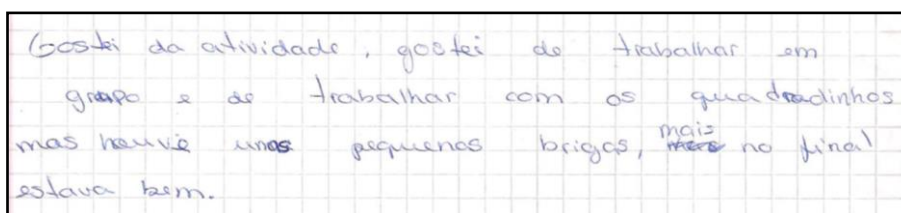 Gostei da atividade, gostei de trabalhar em
grupo e de trabalhar com os quadradinhos
mas houve unas pequenas brigas, mais no final
estava bem.